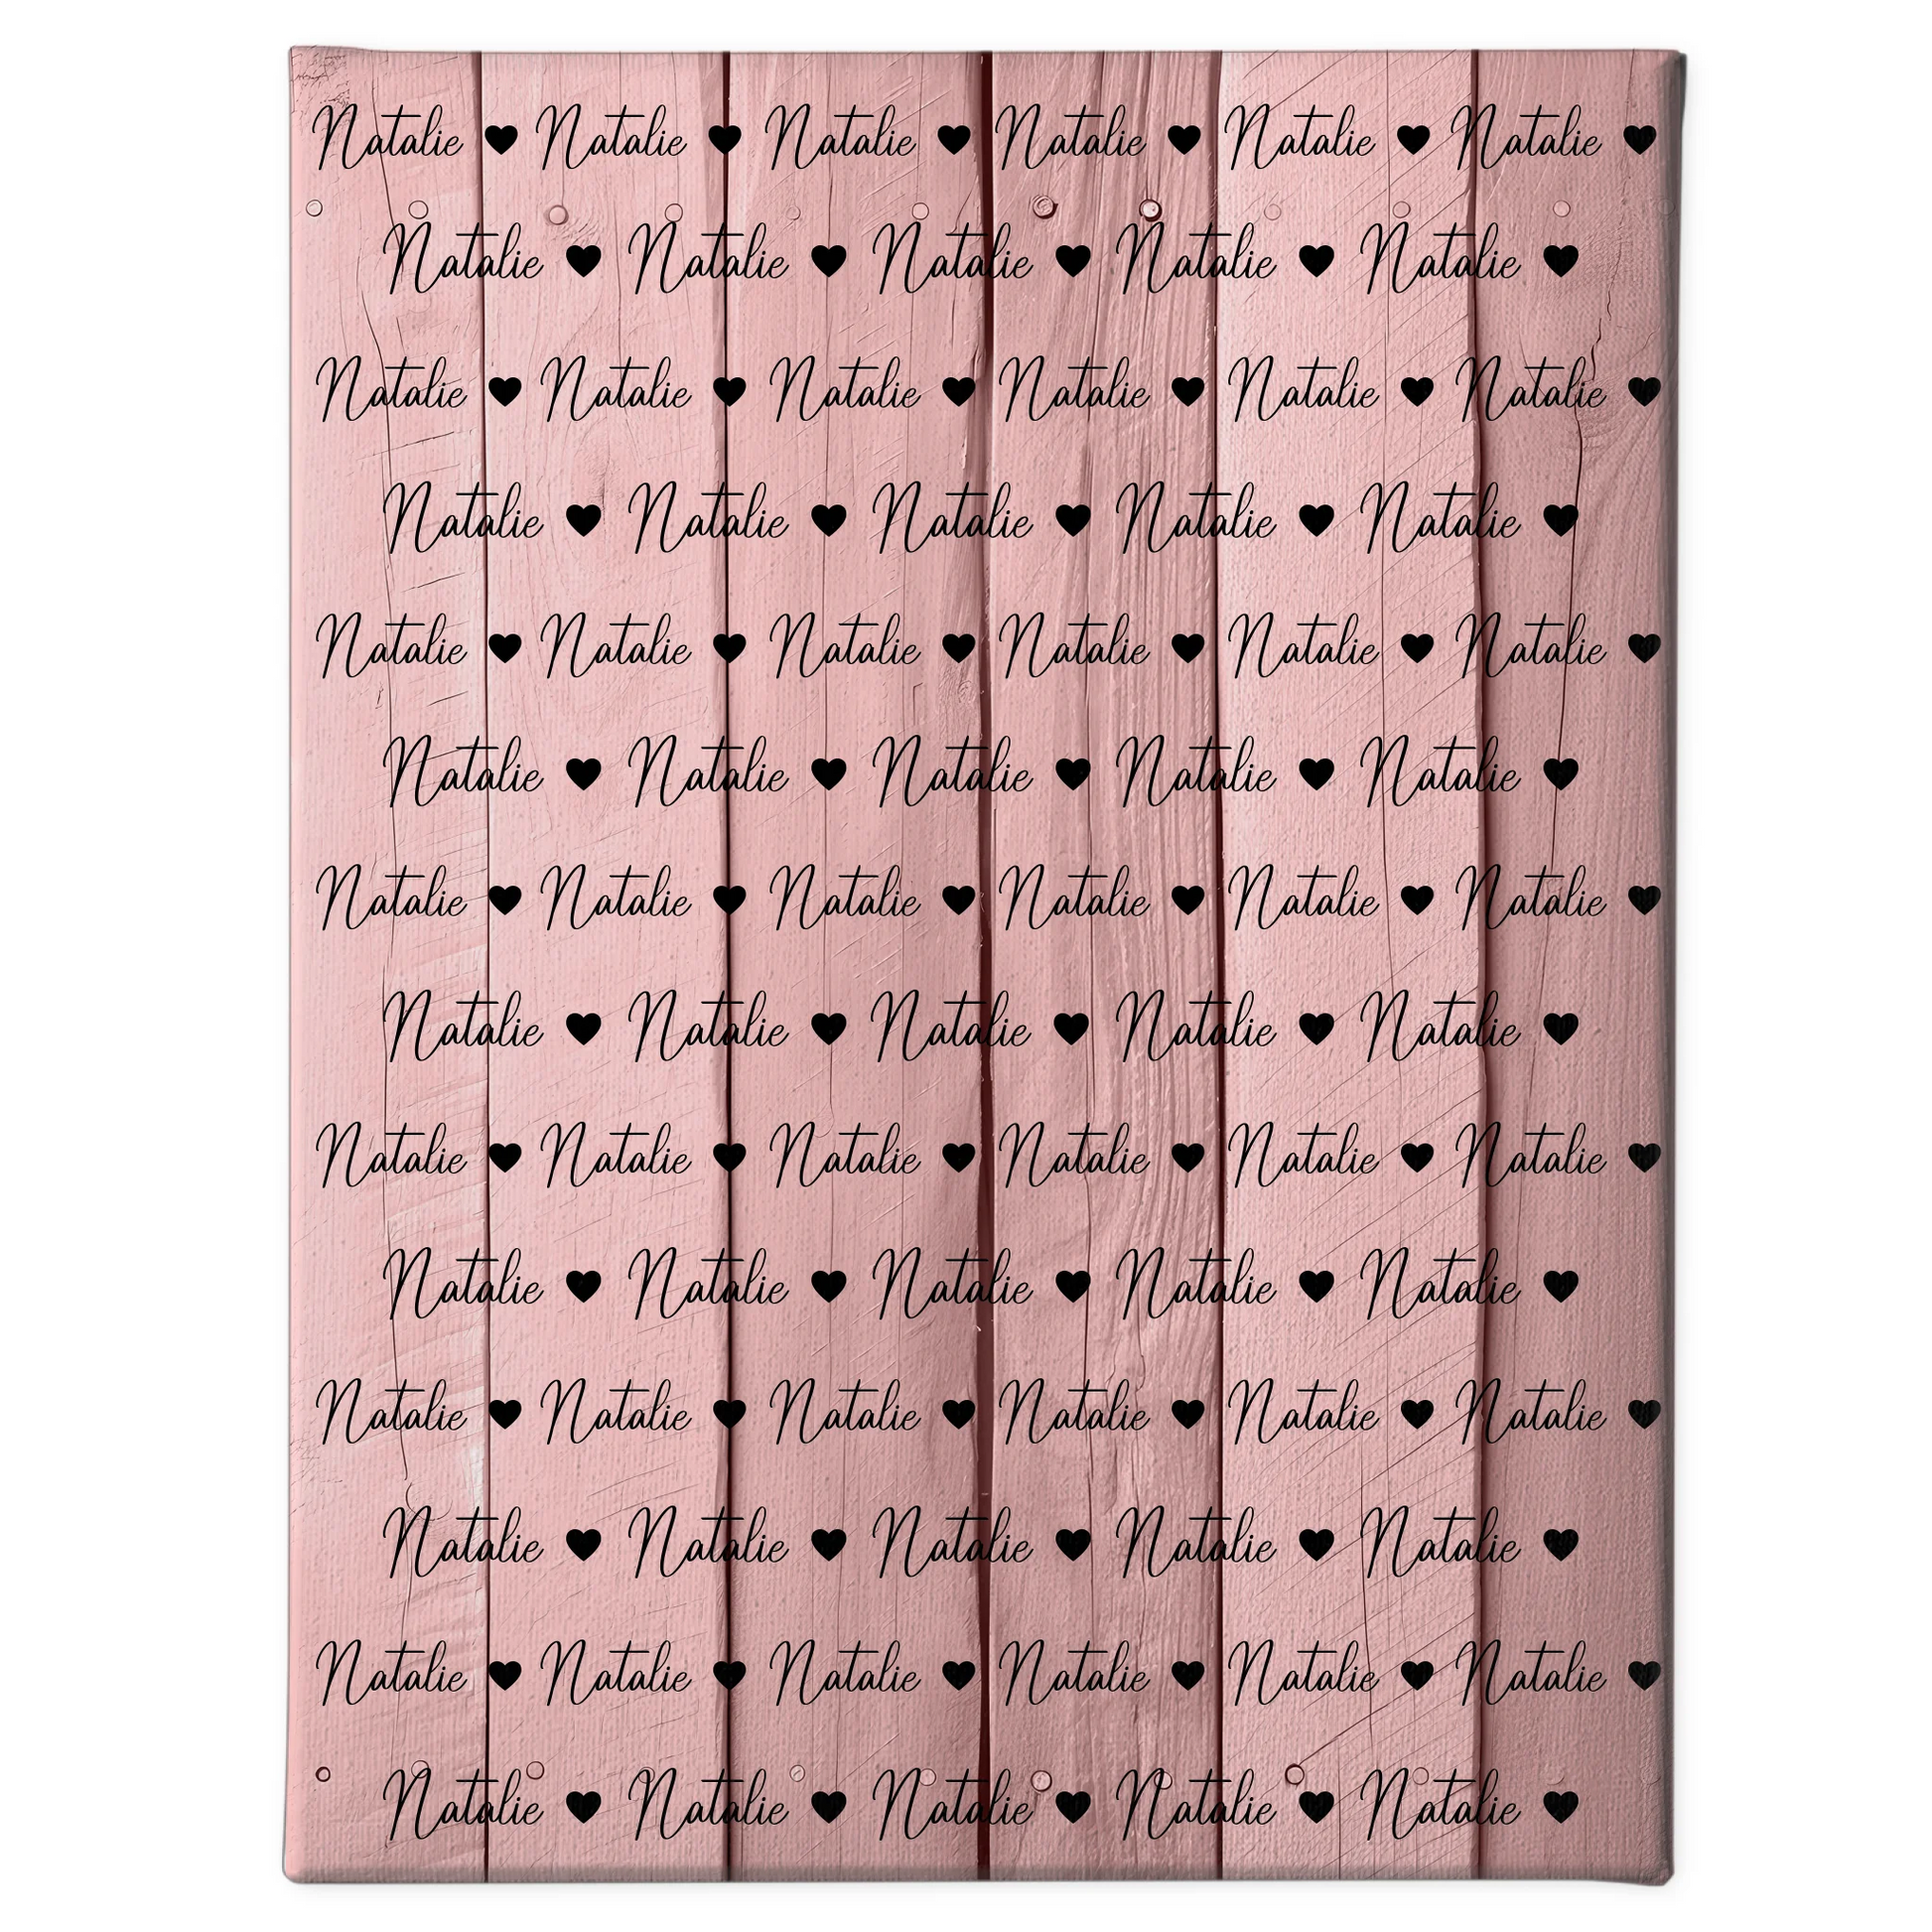 Natalie ♥ Natalie ♥ Natalie ♥ Natalie ♥ Natalie ♥ Natalie ♥
Natalie ♥ Natalie ♥ Natalie ♥ Natalie ♥ Natalie ♥
Natalie ♥ Natalie ♥ Natalie ♥ Natalie ♥ Natalie ♥ Natalie ♥
Natalie ♥ Natalie ♥ Natalie ♥ Natalie ♥ Natalie ♥
Natalie ♥ Natalie ♥ Natalie ♥ Natalie ♥ Natalie ♥ Natalie ♥
Natalie ♥ Natalie ♥ Natalie ♥ Natalie ♥ Natalie ♥
Natalie ♥ Natalie ♥ Natalie ♥ Natalie ♥ Natalie ♥ Natalie ♥
Natalie ♥ Natalie ♥ Natalie ♥ Natalie ♥ Natalie ♥
Natalie ♥ Natalie ♥ Natalie ♥ Natalie ♥ Natalie ♥ Natalie ♥
Natalie ♥ Natalie ♥ Natalie ♥ Natalie ♥ Natalie ♥
Natalie ♥ Natalie ♥ Natalie ♥ Natalie ♥ Natalie ♥ Natalie ♥
Natalie ♥ Natalie ♥ Natalie ♥ Natalie ♥ Natalie ♥
Natalie ♥ Natalie ♥ Natalie ♥ Natalie ♥ Natalie ♥ Natalie ♥
Natalie ♥ Natalie ♥ Natalie ♥ Natalie ♥ Natalie ♥